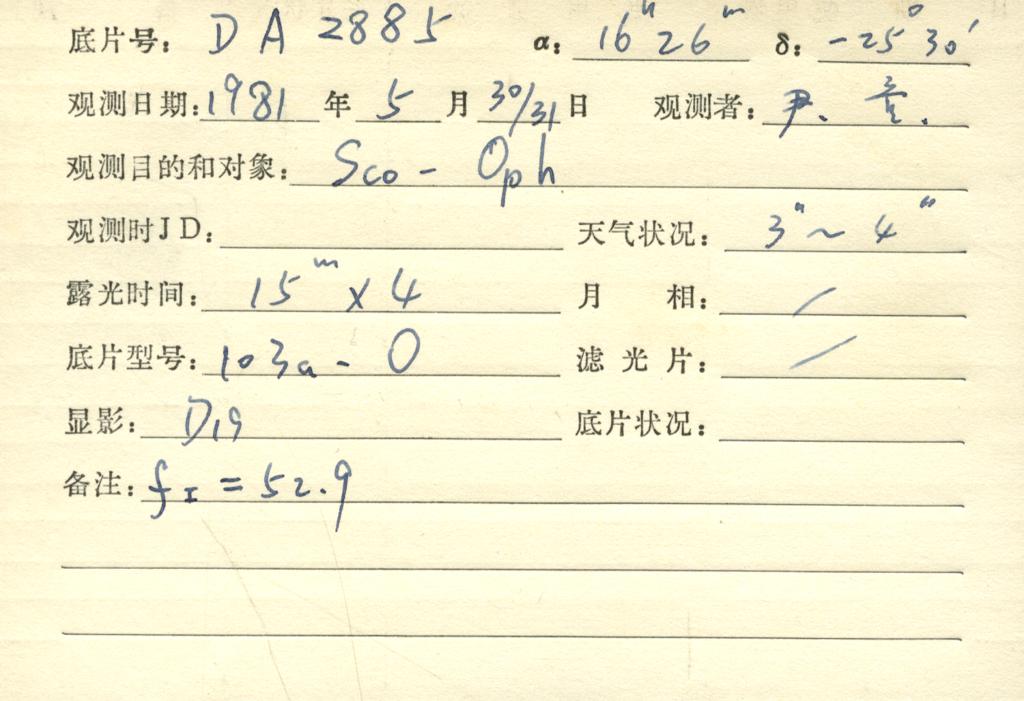 底片号: DA 2885 α: 16ʰ26ᵐ δ: -25°30′
观测日期: 1981 年 5 月 30/31 日 观测者: 尹.
观测目的和对象: Sco - Oph
观测时JD: 天气状况: 3″~4″
露光时间: 15ᵐ×4 月 相: /
底片型号: 103a-O 滤光片: /
显影: D19 底片状况:
备注: f_I = 52.9